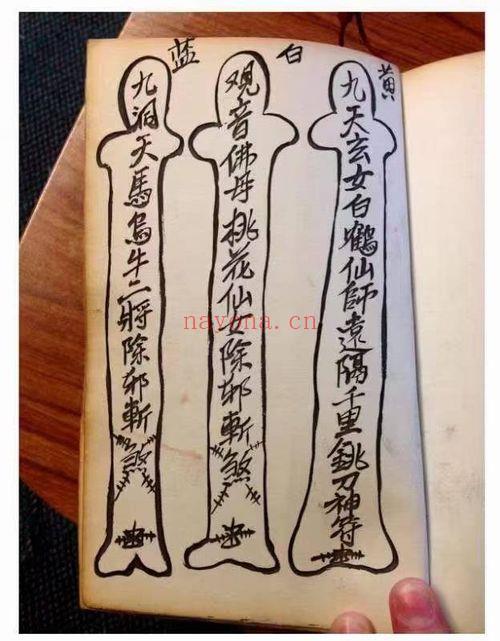 黄
九天玄女白鶴仙師遠隔千里銚刀神符
白
观音佛母桃花仙女除邪斬煞
蓝
九洞天馬烏牛二將除邪斬煞
nayona.cn